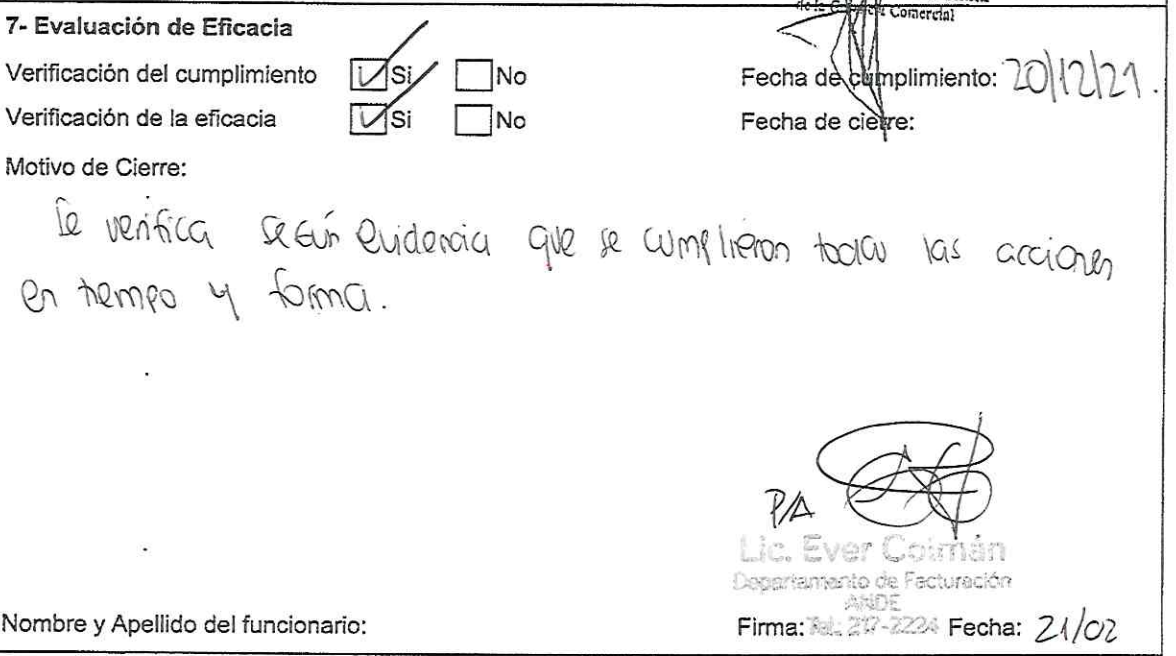 de la Comercial
7- Evaluación de Eficacia
Verificación del cumplimiento Si No Fecha de cumplimiento: 20/12/21.
Verificación de la eficacia Si No Fecha de cierre:
Motivo de Cierre:
Se verifica según evidencia que se cumplieron todas las acciones
en tiempo y forma.
P/A
Lic. Ever Coimán
Departamento de Facturación
ANDE
Nombre y Apellido del funcionario: Firma: Tel.: 217-2224 Fecha: 21/02